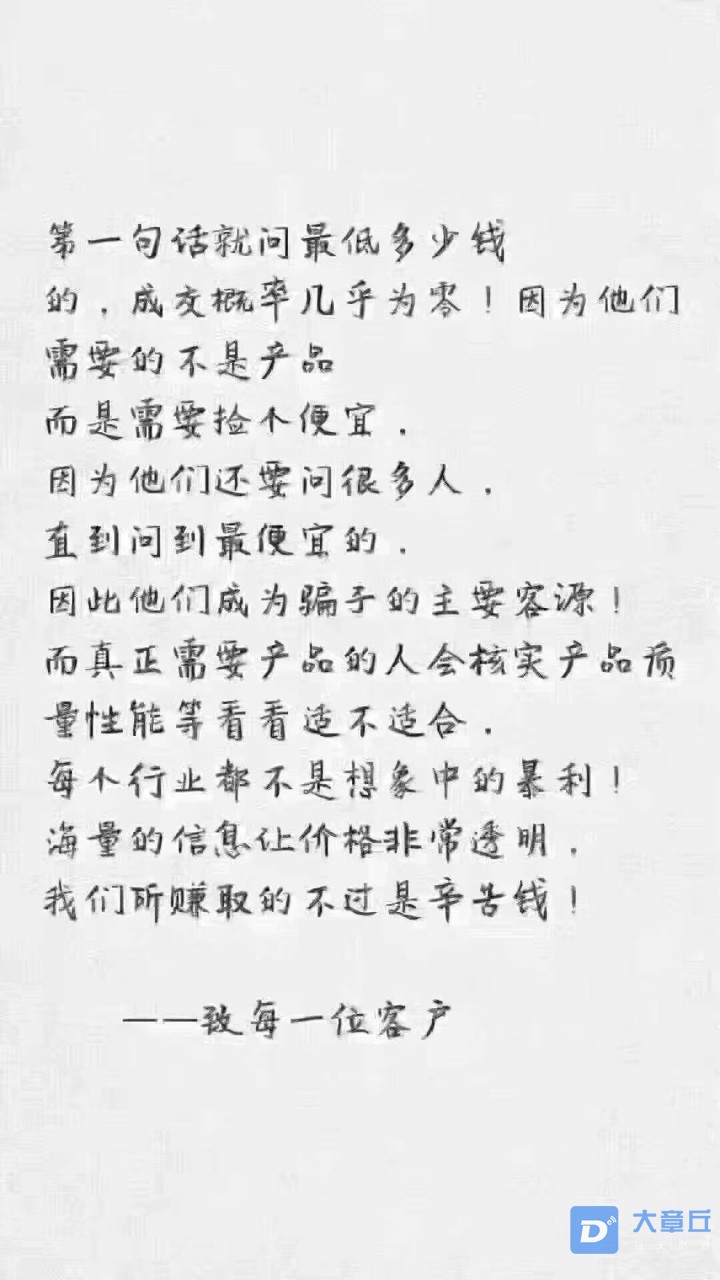 第一句话就问最低多少钱
的，成交概率几乎为零！因为他们
需要的不是产品
而是需要捡个便宜．
因为他们还要问很多人．
直到问到最便宜的．
因此他们成为骗子的主要客源！
而真正需要产品的人会核实产品质
量性能等看看适不适合．
每个行业都不是想象中的暴利！
海量的信息让价格非常透明．
我们所赚取的不过是辛苦钱！
——致每一位客户
大章丘